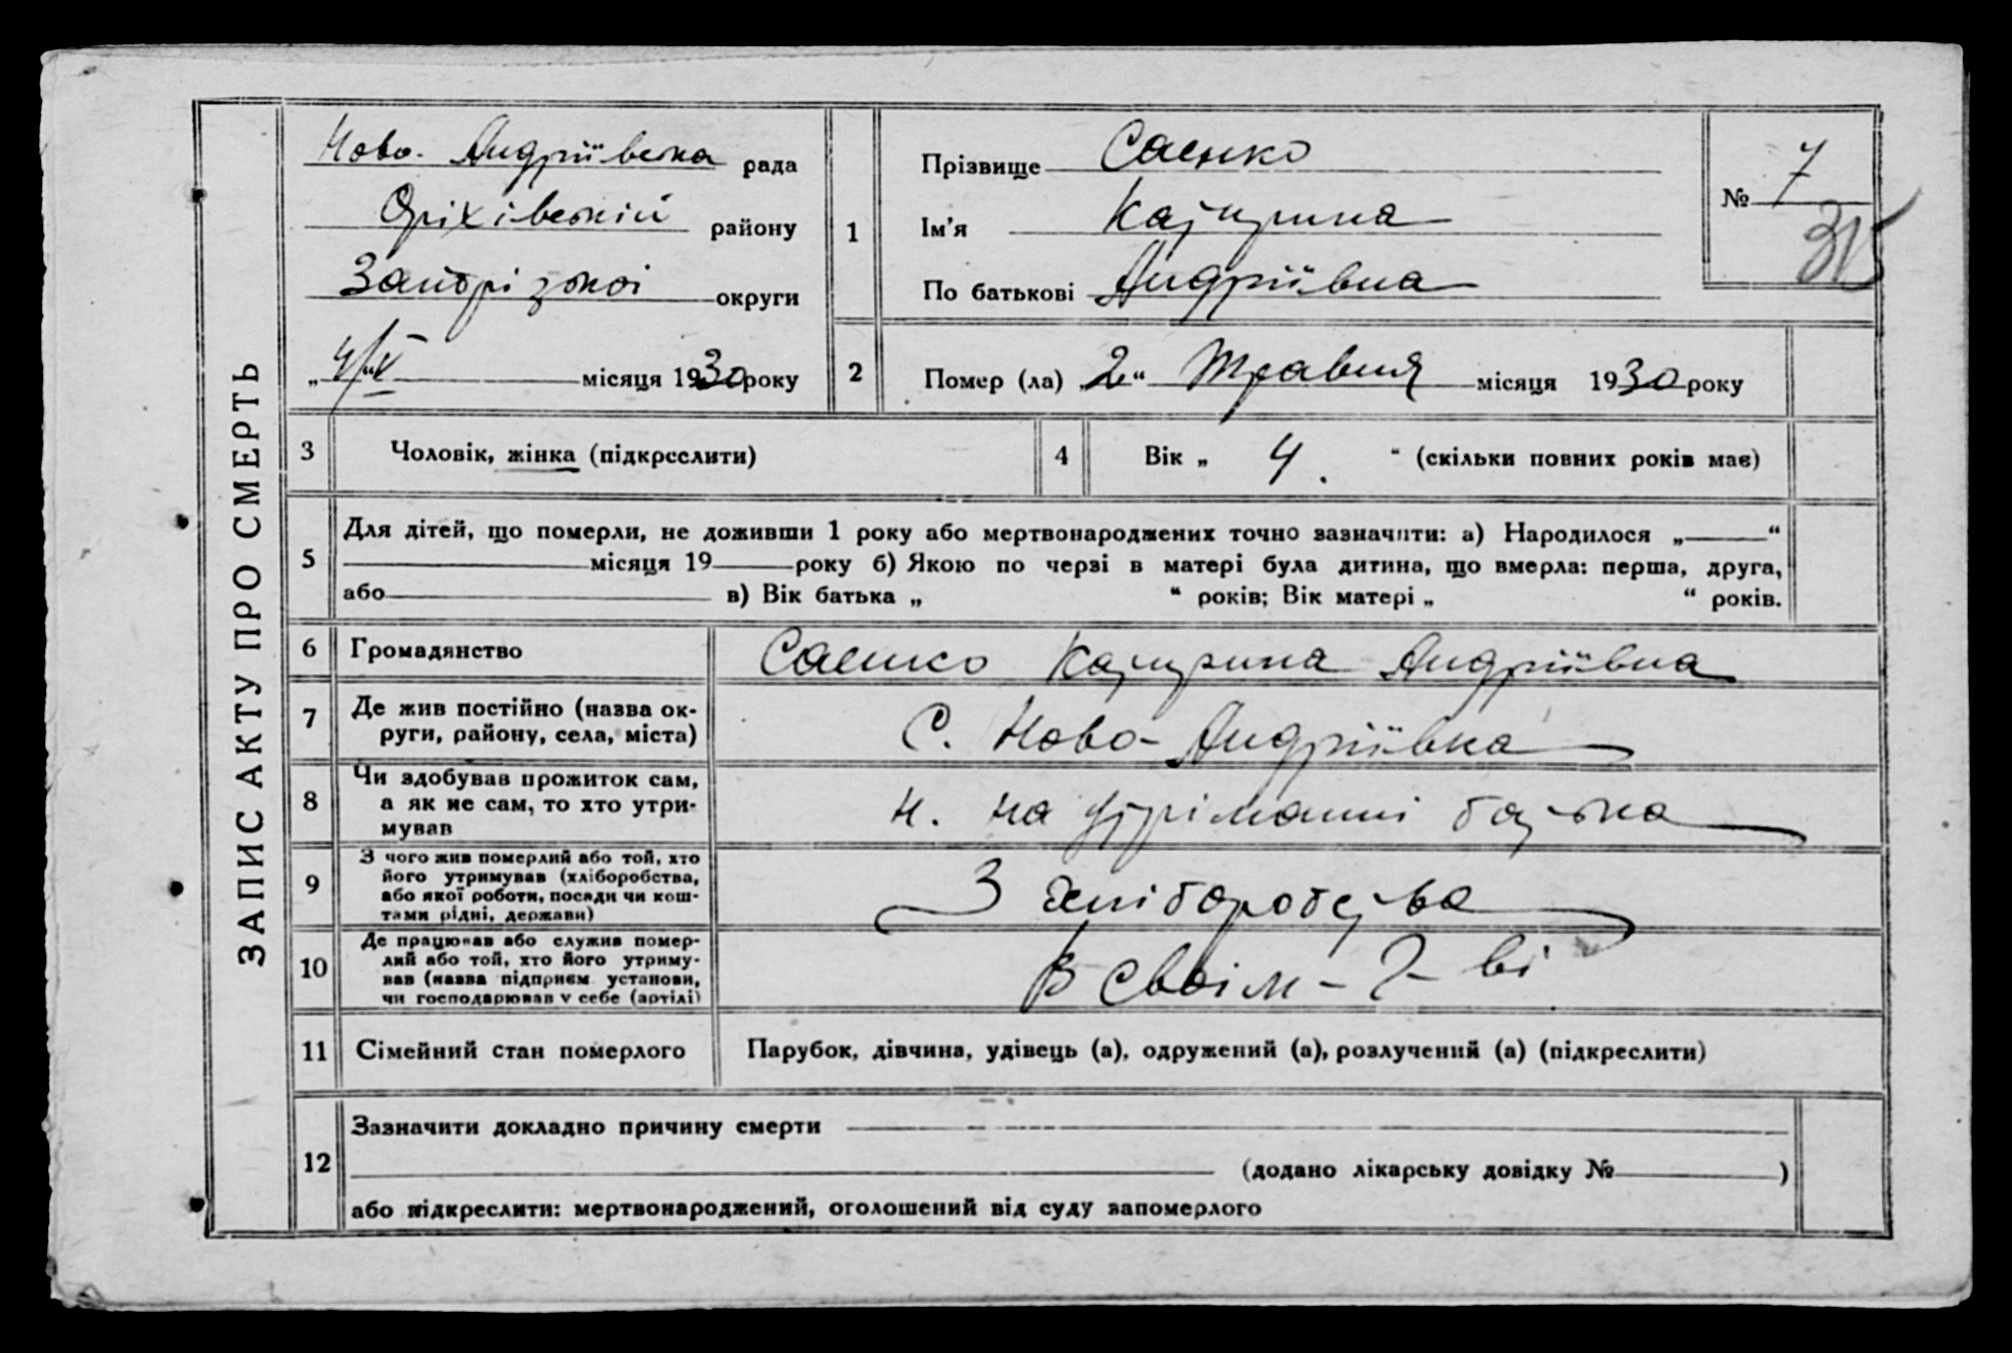 ЗАПИС АКТУ ПРО СМЕРТЬ
Ново-Андріївська рада
Оріхівській району
Запорізької округи
„4/V місяця 1930 року
1
Прізвище Саенко
Ім'я Катерина
По батькові Андріївна
№ 7
2
Помер (ла) 2“ Травня місяця 1930 року
3 Чоловік, жінка (підкреслити)
4 Вік „ 4. “ (скільки повних років має)
5
Для дітей, що померли, не доживши 1 року або мертвонароджених точно зазначити: а) Народилося „ “
місяця 19 року б) Якою по черзі в матері була дитина, що вмерла: перша, друга,
або в) Вік батька „ “ років; Вік матері „ “ років.
6 Громадянство Саенко Катерина Андріївна
7 Де жив постійно (назва ок-
руги, району, села, міста)
С. Ново-Андріївка
8 Чи здобував прожиток сам,
а як не сам, то хто утри-
мував
н. на утріманні батька
9 З чого жив померлий або той, хто
його утримував (хліборобства,
або якої роботи, посади чи кош-
тами рідні, держави)
З хліборобства
10 Де працював або служив помер-
лий або той, хто його утриму-
вав (назва підприєм. установи,
чи господарював у себе (артілі)
В своїм-г-ві
11 Сімейний стан померлого Парубок, дівчина, удівець (а), одружений (а), розлучений (а) (підкреслити)
12
Зазначити докладно причину смерти
(додано лікарську довідку № )
або підкреслити: мертвонароджений, оголошений від суду запомерлого